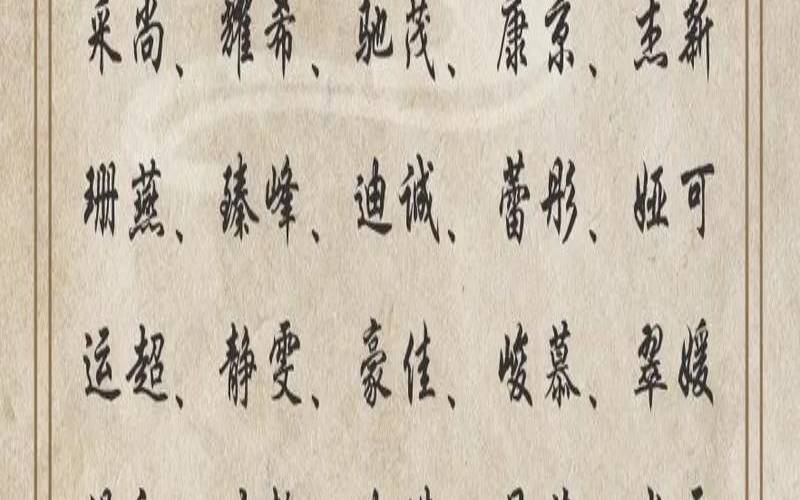 采尚、耀希、驰茂、康京、杰新
珊燕、臻峰、迪诚、蕾彤、娅可
运超、静雯、豪佳、峻慕、翠媛